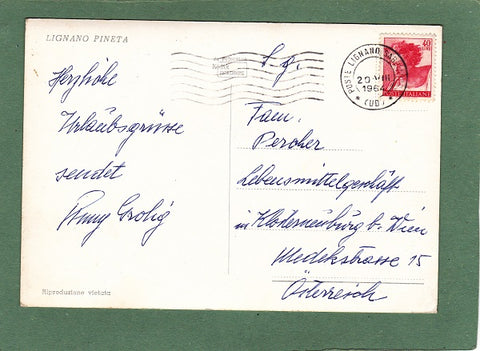 LIGNANO PINETA
Herzliche
Urlaubsgrüsse
sendet
Grolig
Riproduzione vietata
S. g.
Fam.
Percher
Lebensmittelgeschäft
in Klosterneuburg b. Wien
Medekstrasse 15
Österreich
POSTE LIGNANO
20 VIII
1964
(UD)
40
POSTE ITALIANE